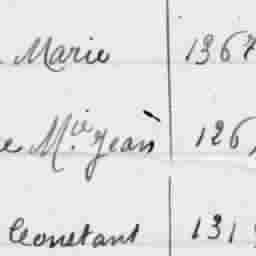 Marie 1367
e M.ie Jean 126
Constant 131